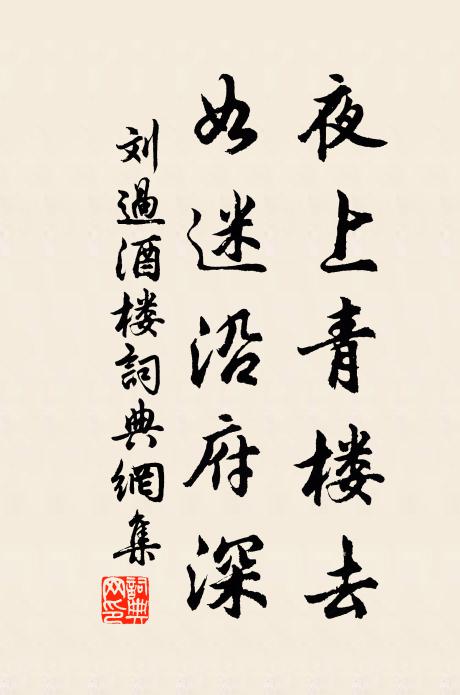 夜上青楼去
如迷沿府深
刘過酒楼詞典網集
詞典网印